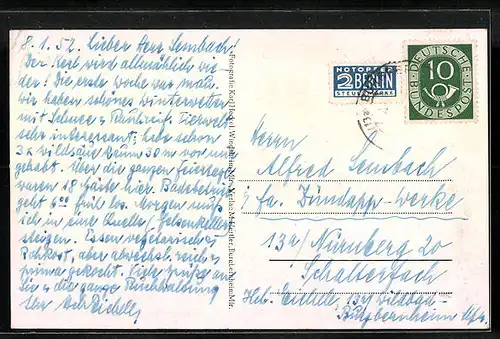 8.1.52. Lieber Herr Sembach!
Der Kerl wird allmählich wie-
der! Die erste Woche war mau,
wir haben schönes Winterwetter
mit Schnee u Rauhreif. Tierwelt
sehr interessant; habe schon
3x Wildsäue kaum 30 m vor mir
gehabt. Über die ganzen Feiertage
waren 18 Gäste hier. Badebetrieb
geht 6 00 früh los. Morgen muß
ich in eine Quelle (Felsenkeller)
steigen. Essen vegetarisch u
Rohkost, aber abwechsl. reich u
prima gekocht. Viele Grüße an
Sie u die ganze Buchhaltung
Ihr Eichelle
Fotografie Karl Hockel, Windsheim, Mfr. Verlag M. Hertler, Burgbernheim, Mfr.
NOTOPFER
2 BERLIN
STEUERMARKE
DEUTSCHE
BUNDESPOST
10
Herrn
Alfred Sembach
fa. Zündapp-Werke
13a/Nürnberg 20
Schalterfach
Eichelle, 13a Wildbad-
Burgbernheim Mfr.